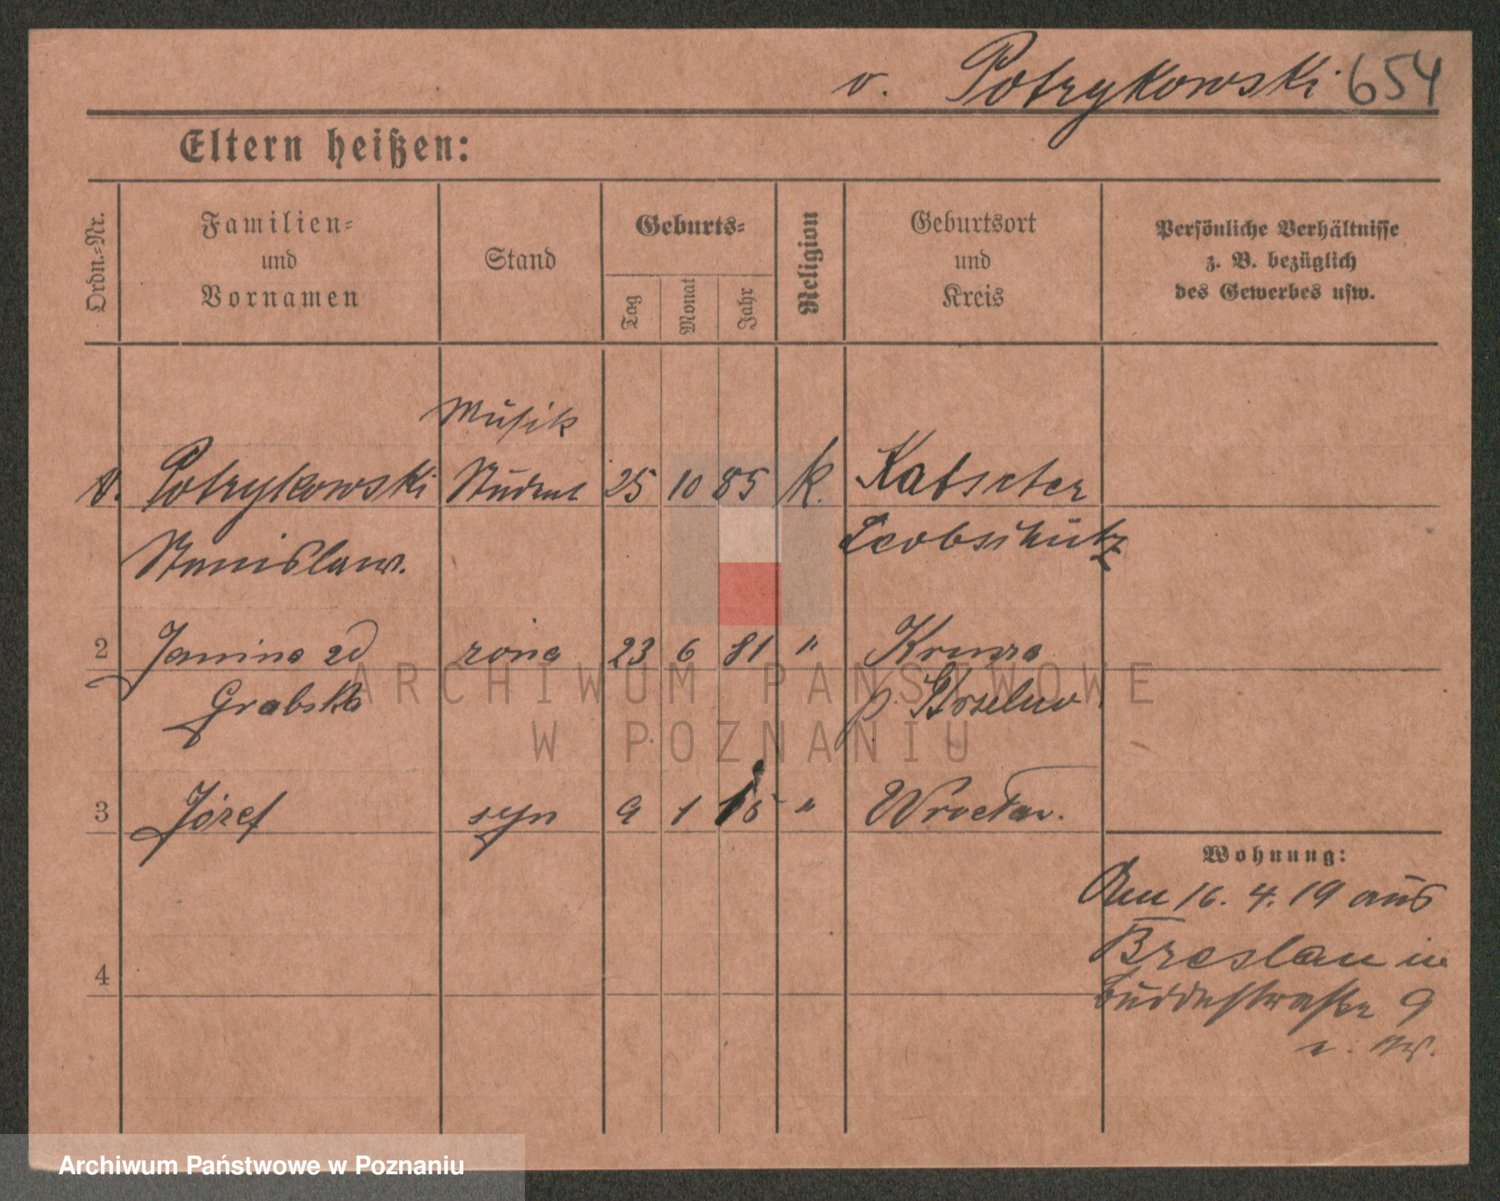 v. Potrykowski 654
Eltern heißen:
Ordn.=Nr.
Familien=
und
Vornamen
Stand
Geburts=
Tag
Monat
Jahr
Religion
Geburtsort
und
Kreis
Persönliche Verhältnisse
z. B. bezüglich
des Gewerbes usw.
Musik
v. Potrykowski Student 25 10 85 k. Katscher
Stanislaw. Leobschütz
2 Janina zd żona 23 6 81 "
Grabsk
3 Józef syn 9 1 15 " Wrocław.
Wohnung:
Am 16. 4. 19 aus
Breslau in
Buddestraße 9
4
ARCHIWUM PAŃSTWOWE
W POZNANIU
Archiwum Państwowe w Poznaniu